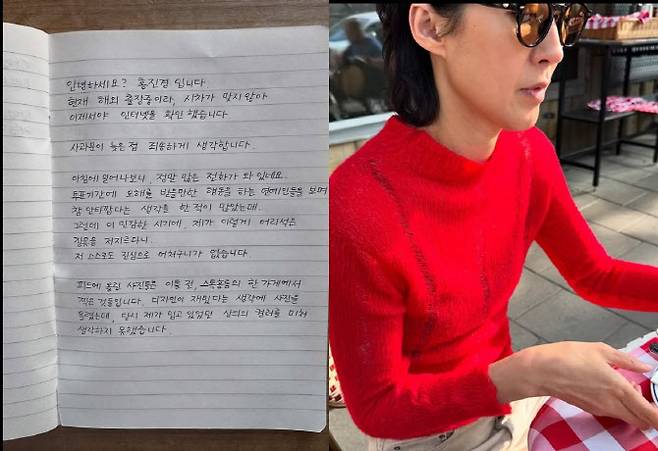 안녕하세요? 홍진경 입니다.
현재 해외 출장중이라, 시차가 맞지않아
이제서야 인터넷을 확인했습니다.
사과문이 늦은 점 죄송하게 생각합니다.
아침에 일어나보니, 정말 많은 전화가 와 있네요.
투표기간에 오해를 받을만한 행동을 하는 연예인들을 보며
참 안타깝다는 생각을 한적이 많았는데,
그런데 이 민감한 시기에, 제가 이렇게 어리석은
잘못을 저지르다니.
저 스스로도 진심으로 어처구니가 없습니다.
피드에 올린 사진들은 이틀 전, 스톡홀름의 한 가게에서
찍은 것들입니다. 디자인이 재밌다는 생각에 사진을
올렸는데, 당시 제가 입고 있었던 상의의 컬러를 미처
생각하지 못했습니다.